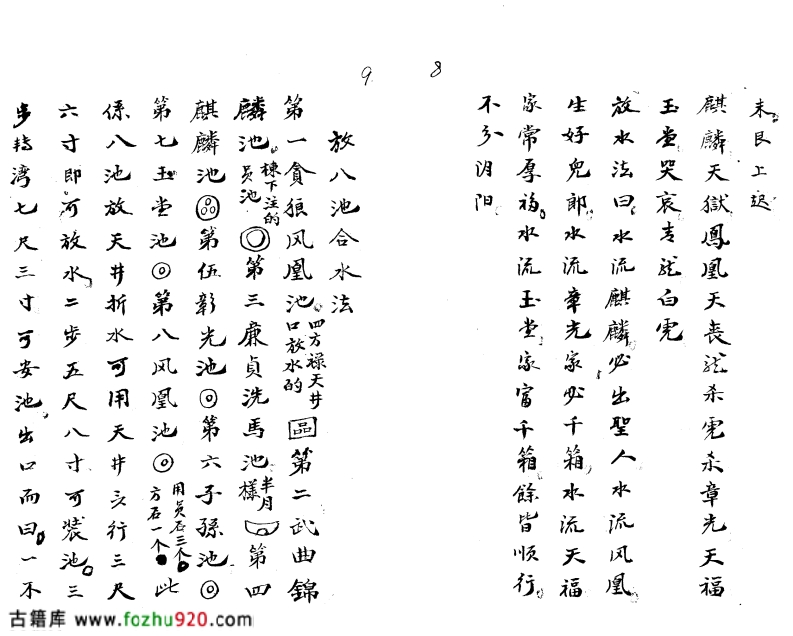 8
未艮上退
麒麟天獄鳳凰天喪龙杀虎杀章光天福
玉堂哭哀青龙白虎
放水法曰水流麒麟必出聖人水流风凰
生好兒郎水流章光家必千箱水流天福
家常厚福水流玉堂家富千箱餘皆順行
不分阴阳
9
放八池合水法
第一貪狼风凰池四方禄天井口放水的第二武曲錦
麟池棟下注的员池第三廉貞洗馬池半月樣第四
麒麟池第伍彰光池第六子孫池
第七玉堂池第八风凰池用员石三个方石一个此
係八池放天井折水可用天井六行三尺
六寸即可放水二步五尺八寸可装池三
步转湾七尺三寸可安池出口而曰一不
古籍库 www.fozhu920.com